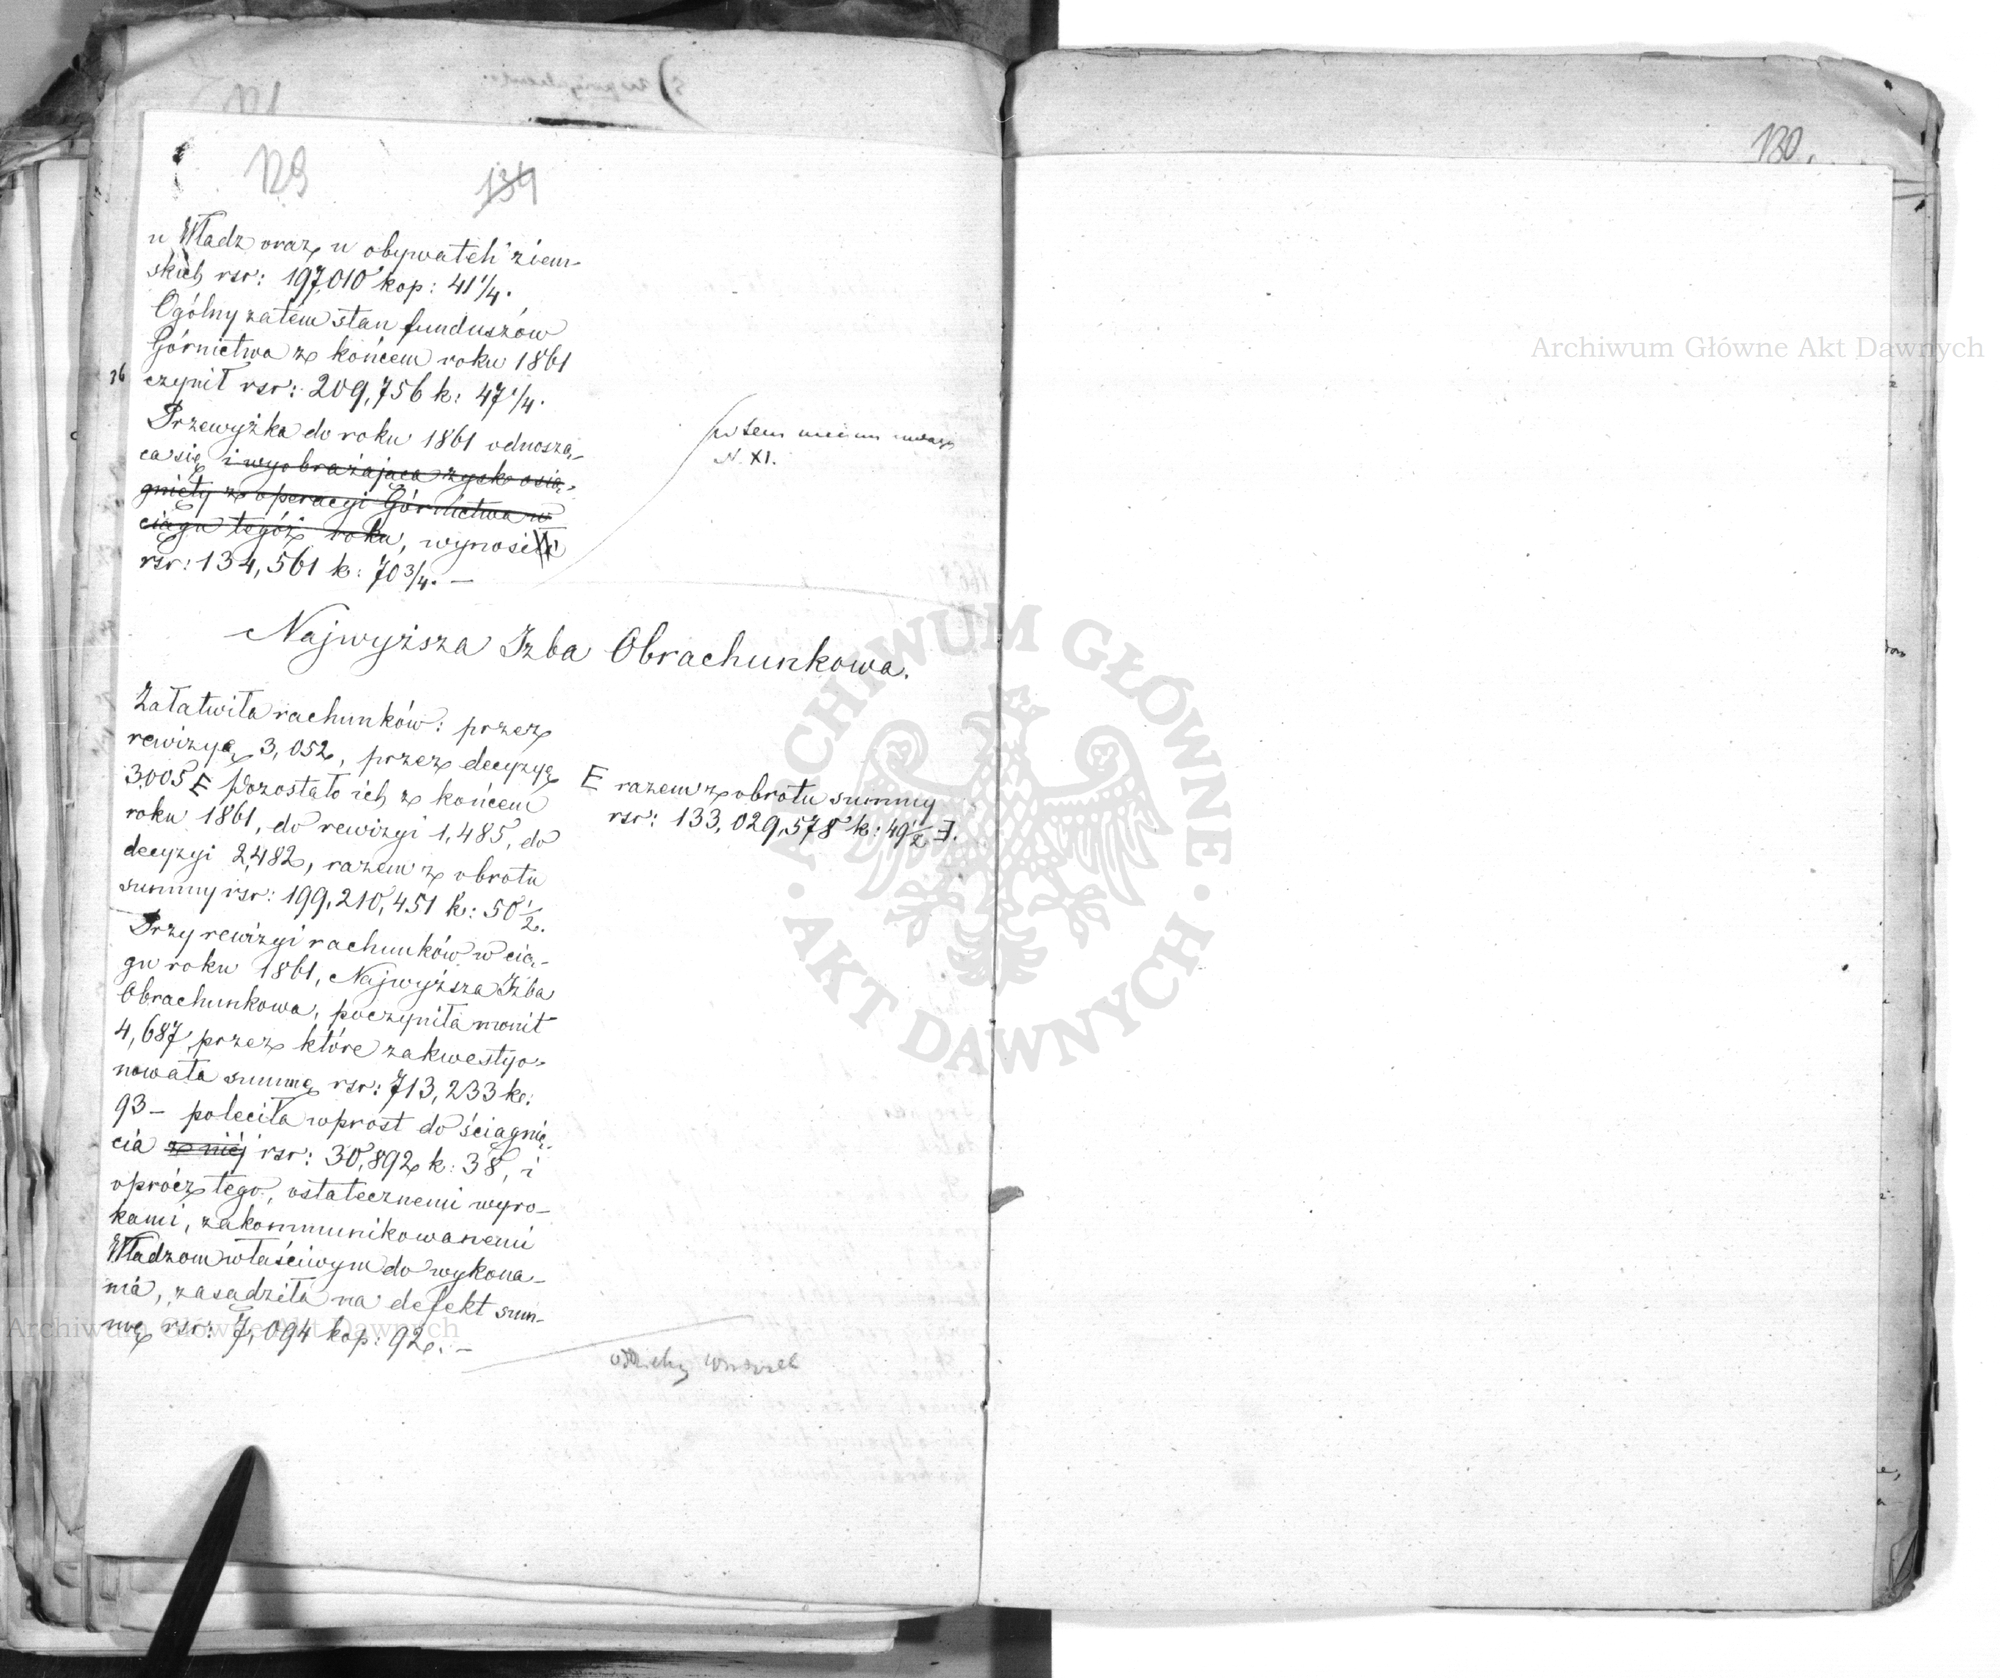 129
134
u Władz oraz u obywateli ziem-
skich rsr: 197,010 kop: 41 1/4.
Ogólny zatem stan funduszów
Górnictwa z końcem roku 1861
czynił rsr: 209,756 k: 47 1/4.
Przewyżka do roku 1861 odnoszą-
ca się i wyobrażająca zysk osią-
gnięty z operacyi Górnictwa w
ciągu tegóż roku, wynosi
rsr: 134,561 k: 70 3/4. —
w tem
N. XI.
Najwyższa Izba Obrachunkowa.
Załatwiła rachunków: przez
rewizyą 3,052, przez decyzyą
3,005 E Pozostało ich z końcem
roku 1861, do rewizyi 1,485, do
decyzyi 2,482, razem z obrotu
summy rsr: 199,210,451 k: 50 1/2.
E razem z obrotu summy
rsr: 133,029,578 k: 49 1/2 Ǝ.
Przy rewizyi rachunków w cią-
gu roku 1861, Najwyższa Izba
Obrachunkowa, poczyniła monit
4,687 przez które zakwestyo-
nowała summę rsr: 713,233 k:
93 — poleciła wprost do ściągnię-
cia z niéj rsr: 30,892 k: 38, i
oprócz tego, ostatecznemi wyro-
kami, zakommunikowanemi
Władzom właściwym do wykona-
nia, zasądziła na defekt sum-
mę rsr: 7,094 kop: 92. —
130.
Archiwum Główne Akt Dawnych
ARCHIWUM GŁÓWNE
AKT DAWNYCH
Archiwum Główne Akt Dawnych